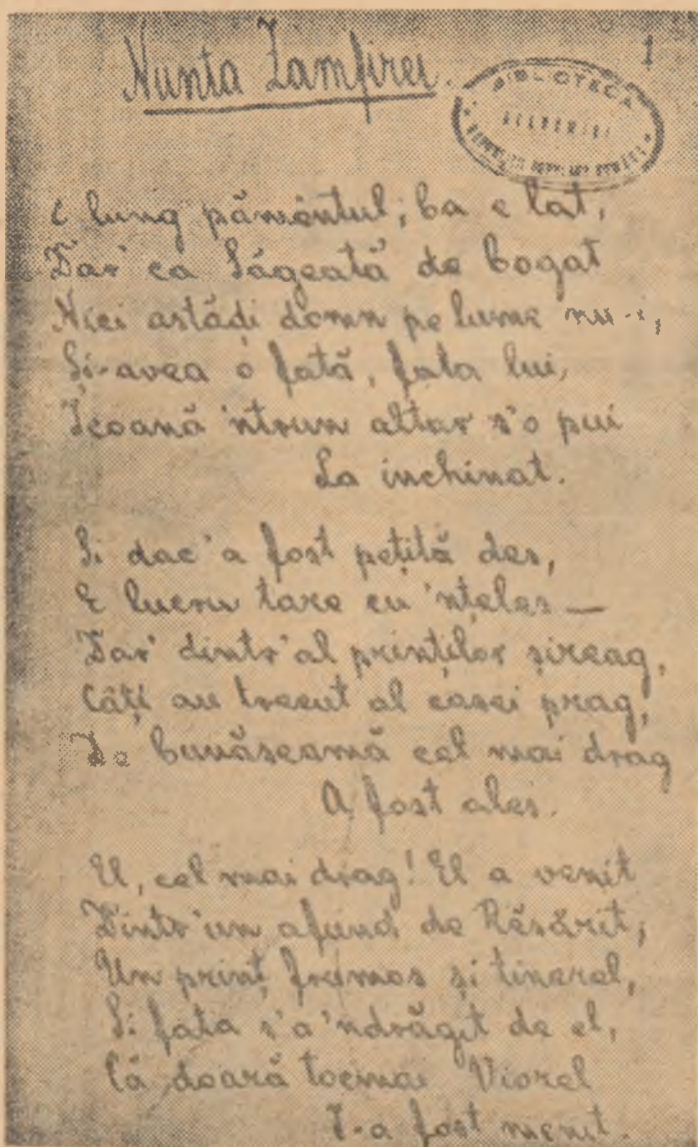 Nunta Zamfirei.
1
BIBLIOTECA
E lung pămêntul, ba e lat,
Dar' ca Săgeată de bogat
Nici astădi domn pe lume nu-i,
Și-avea o fată, fata lui,
Icoană 'ntrun altar s'o pui
La inchinat.
Si dac'a fost petită des,
E lucru tare cu 'nteles —
Dar' dintr'al prinților șireag,
Câți au trecut al casei prag,
De bunăseamă cel mai drag
A fost ales.
El, cel mai drag! El a venit
Dintr'un afund de Răsărit,
Un prinț frumos și tinerel,
Si fata s'a 'ndrăgit de el,
Că doară tocmai Viorel
I-a fost menit.